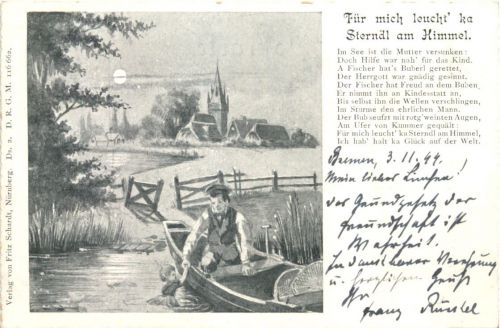 Für mich leucht' ka
Sterndl am Himmel.
Im See ist die Mutter versunken:
Doch Hilfe war nah' für das Kind.
A Fischer hat's Buberl gerettet,
Der Herrgott war gnädig gesinnt.
Der Fischer hat Freud an dem Buben,
Er nimmt ihn an Kindesstatt an,
Bis selbst ihn die Wellen verschlingen,
Im Sturme den ehrlichen Mann.
Der Bub seufzt mit rotg'weinten Augen,
Am Ufer von Kummer gequält:
Für mich leucht' ka Sterndl am Himmel,
Ich hab' halt ka Glück auf der Welt.
Bremen, 3.11.99.
Mein lieber
Das Grundgesetz der
Freundschaft ist
Wahrheit!
In dankbarer Verehrung
u. herzlichem Gruß
Ihr
Franz
Verlag von Fritz Schardt, Nürnberg. Ds. 2. D. R. G. M. 116 662.